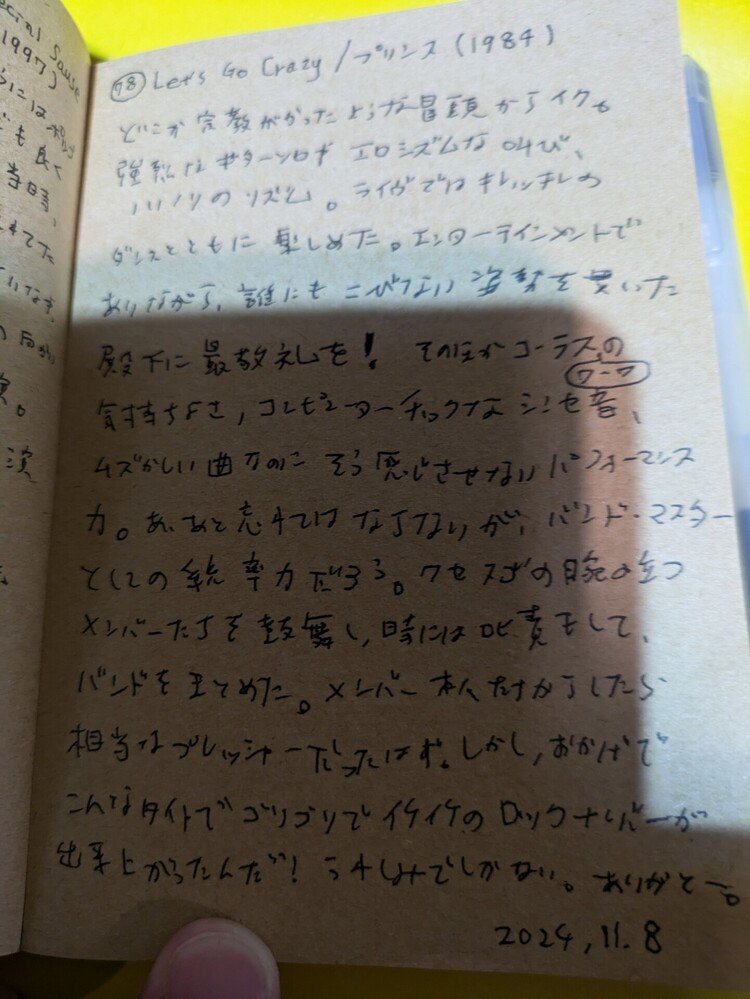 ecial Sause
(1997)
らには
ども良く
当時、
演
⑦⑧ Let's Go Crazy / プリンス (1984)
どこか宗教がかったような冒頭からイクも
強烈なギターソロやエロシズムな叫び、
ノリノリのリズム。ライヴではキレッキレの
ダンスとともに楽しめた。エンターテインメントで
ありながら、誰にもこびない姿勢を貫いた
殿下に最敬礼を! そのほかコーラスの
ワーワ
気持ちよさ、コンピューターチックなシンセ音、
ムズかしい曲なのにそう感じさせないパフォーマンス
力。あ、あと忘れてはならないが、バンド・マスター
としての統率力だろう。クセスゴの腕の立つ
メンバーたちを鼓舞し、時には叱責もして、
バンドをまとめた。メンバー本人たちからしたら
相当なプレッシャーだったはず。しかし、おかげで
こんなタイトでゴリゴリでイケイケのロックナンバーが
出来上がったんだ! うれしみでしかない。ありがとー。
2024,11.8